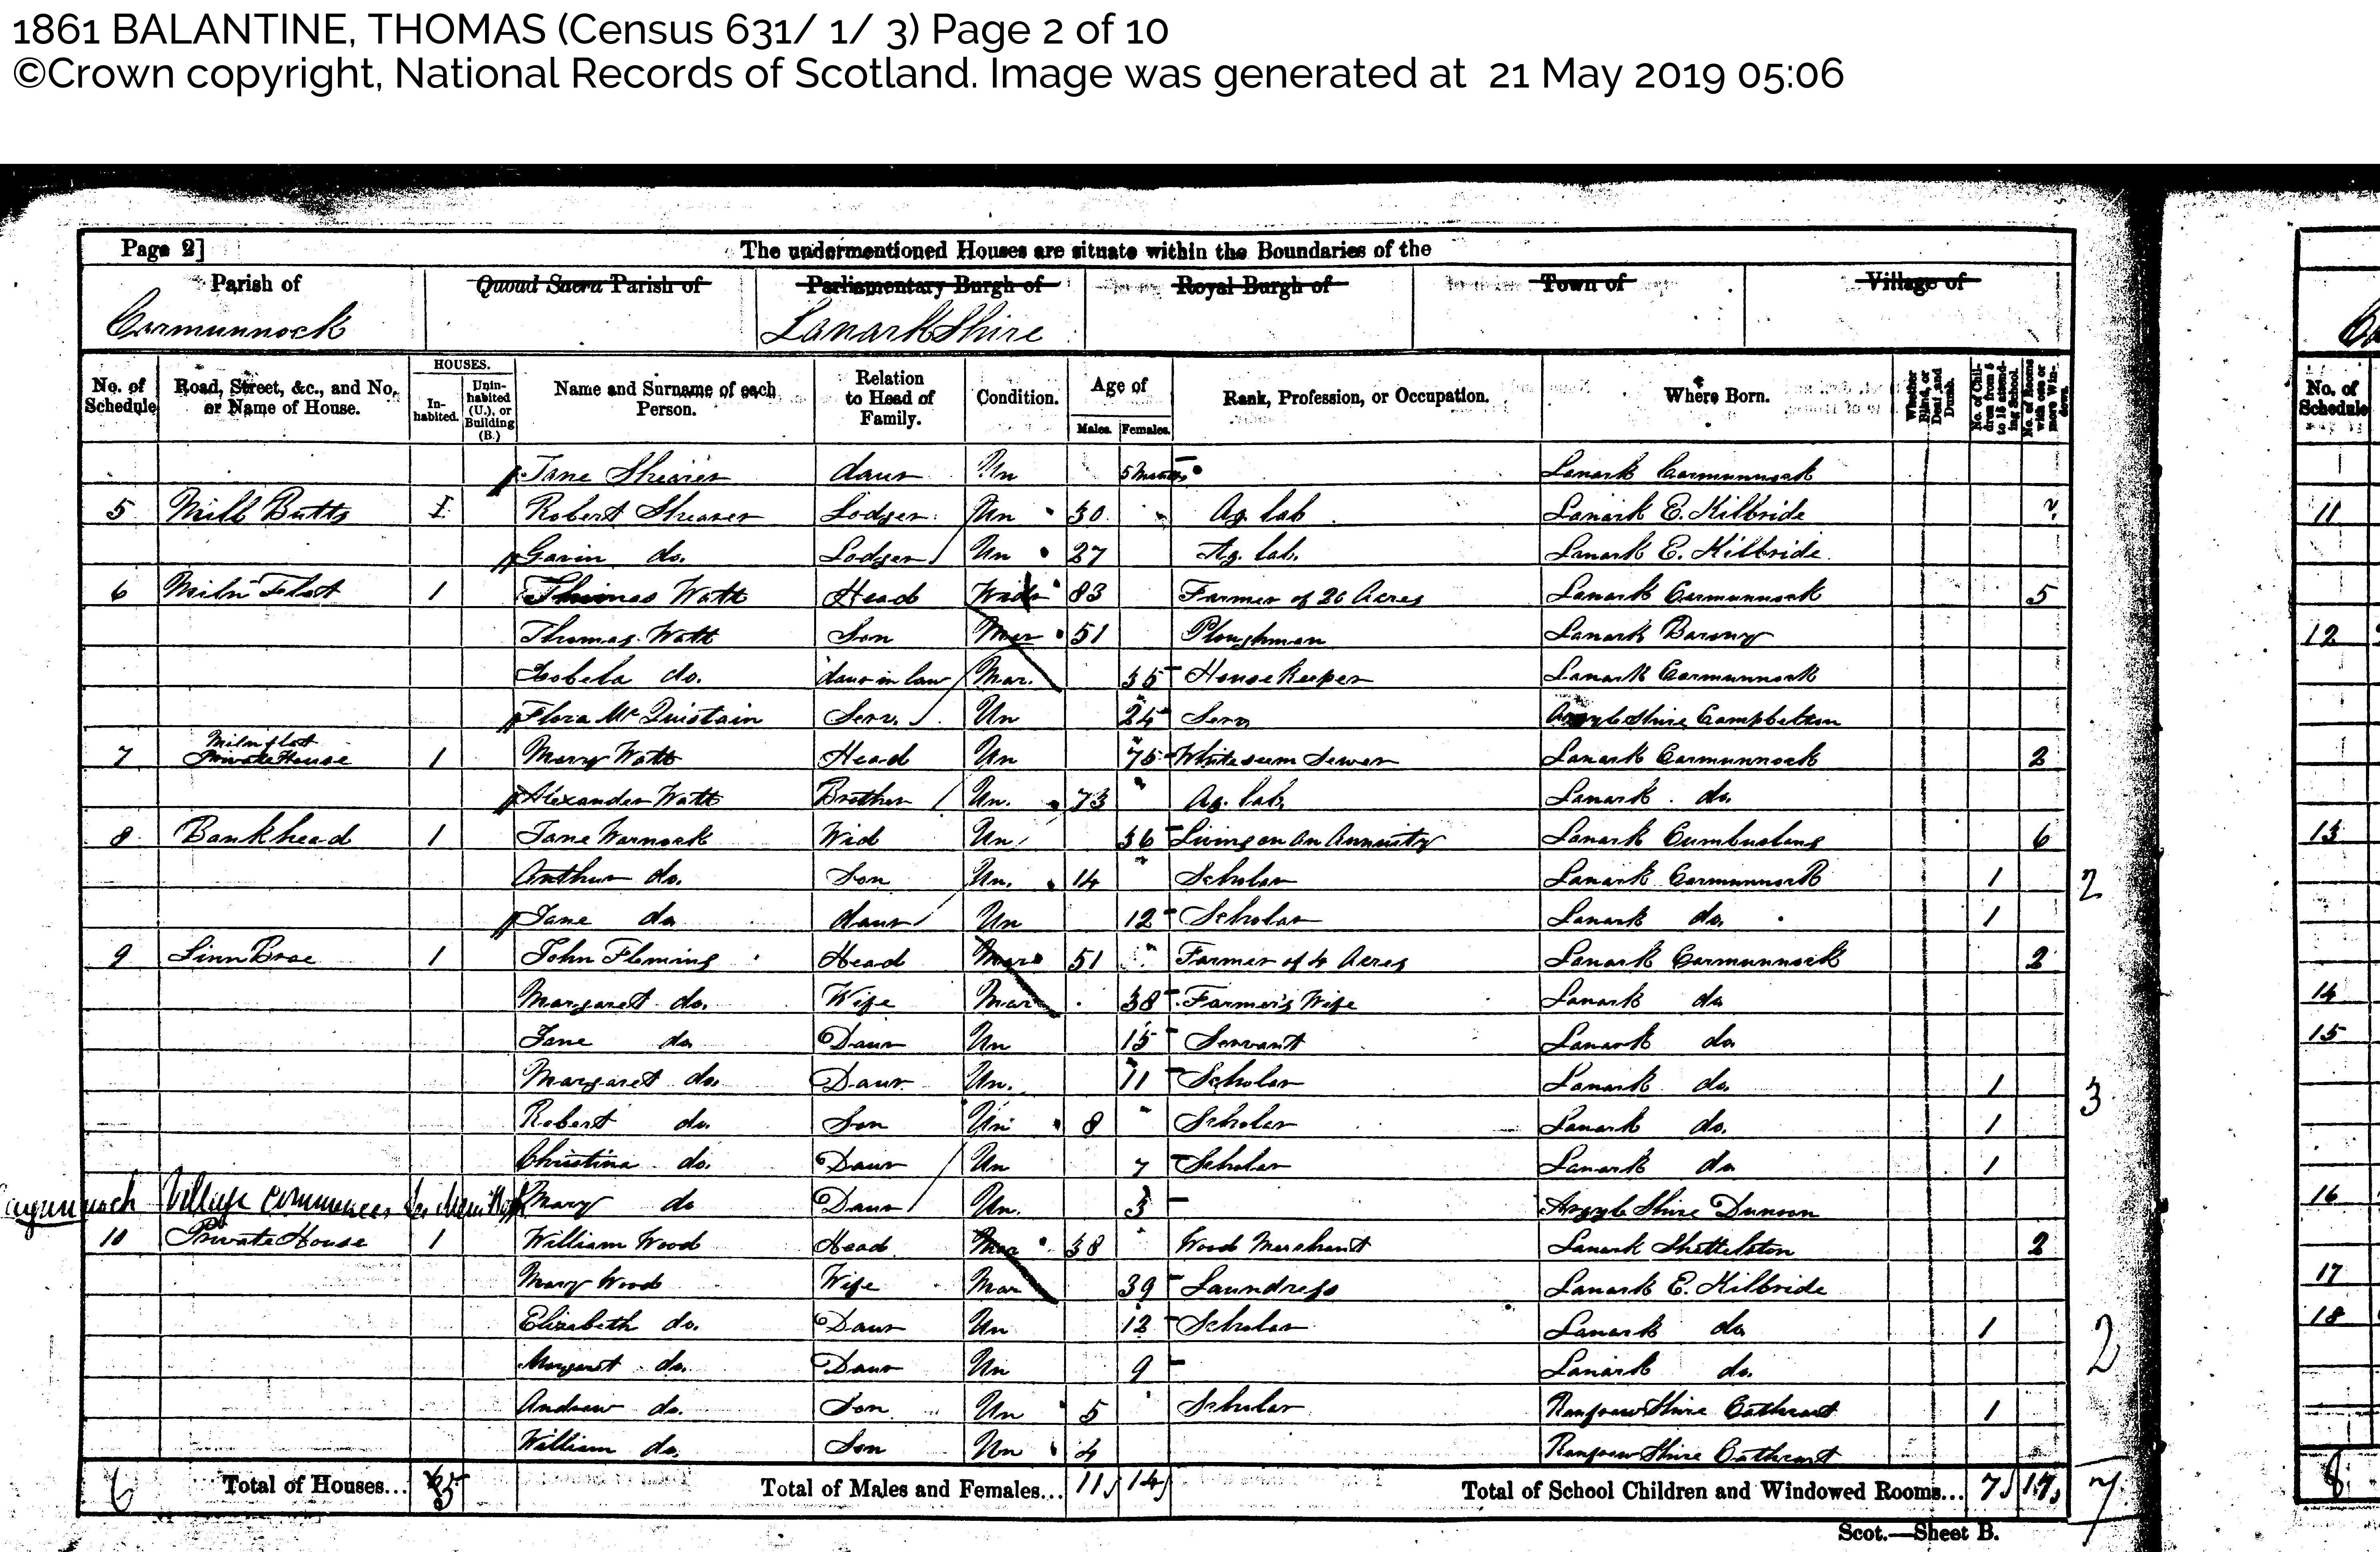 1861 BALANTINE, THOMAS (Census 631/ 1/ 3) Page 2 of 10
©Crown copyright, National Records of Scotland. Image was generated at 21 May 2019 05:06
Page 2] The undermentioned Houses are situate within the Boundaries of the
Parish of Quoad Sacra Parish of Parliamentary Burgh of Royal Burgh of Town of Village of
Carmunnock LanarkShire
No. of Schedule Road, Street, &c., and No. or Name of House. HOUSES. In-habited. Unin-habited (U.), or Building (B.) Name and Surname of each Person. Relation to Head of Family. Condition. Age of Males. Females. Rank, Profession, or Occupation. Where Born. Whether Blind, or Deaf and Dumb. No. of Chil-dren from 5 to 15 attend-ing School. No. of Rooms with one or more Win-dows. No. of Schedule
Jane Shearer daur Un 5 Months Lanark Carmunnock
5 Mill Butts 1 Robert Shearer Lodger Un 30 Ag. lab Lanark E. Kilbride 11
Gavin do. Lodger Un 27 Ag. lab. Lanark E. Kilbride
6 Miln Flat 1 Thomas Watt Head 83 Farmer of 20 Acres Lanark Carmunnock 5
Thomas Watt Son Mar 51 Ploughman Lanark Barony 12
Isobela do. daur in law Mar. 35 House Keeper Lanark Carmunnock
Flora Mc Quistain Serv. Un 24 Serv ArgyleShire Campbelton
7 Milnflat Private House 1 Mary Watt Head Un 75 White seem Sewer Lanark Carmunnock 2
Alexander Watt Brother Un. 73 Ag. lab. Lanark do.
8 Bankhead 1 Jane Warnock Wid Un 36 Living on An Annuity Lanark Cumbuslang 6 13
Arthur do. Son Un. 14 Scholar Lanark Carmunnock 1 2
Jane do daur Un 12 Scholar Lanark do. 1
9 Linn Brae 1 John Fleming Head Mar 51 Farmer of 4 Acres Lanark Carmunnock 2
Margaret do. Wife Mar 38 Farmer's Wife Lanark do 14
Jane do Daur Un 15 Servant Lanark do 15
Margaret do. Daur Un. 11 Scholar Lanark do. 1 3
Robert do. Son Un 8 Scholar Lanark do. 1
Christina do. Daur Un 7 Scholar Lanark do 1
Village commences Mary do Daur Un. 3 Argyle Shire Dunoon 16
10 Private House 1 William Wood Head Mar 38 Wood Merchant Lanark Shettelston 2
Mary Wood Wife Mar 39 Laundress Lanark E. Kilbride 17
Elizabeth do. Daur Un 12 Scholar Lanark do 1 2 18
Margaret do. Daur Un 9 Lanark do.
Andrew do. Son Un 5 Scholar RenfrewShire Cathcart 1
William do. Son Un 4 RenfrewShire Cathcart
6 Total of Houses... 5 Total of Males and Females... 11 14 Total of School Children and Windowed Rooms... 7 17 7 8
Scot.—Sheet B.